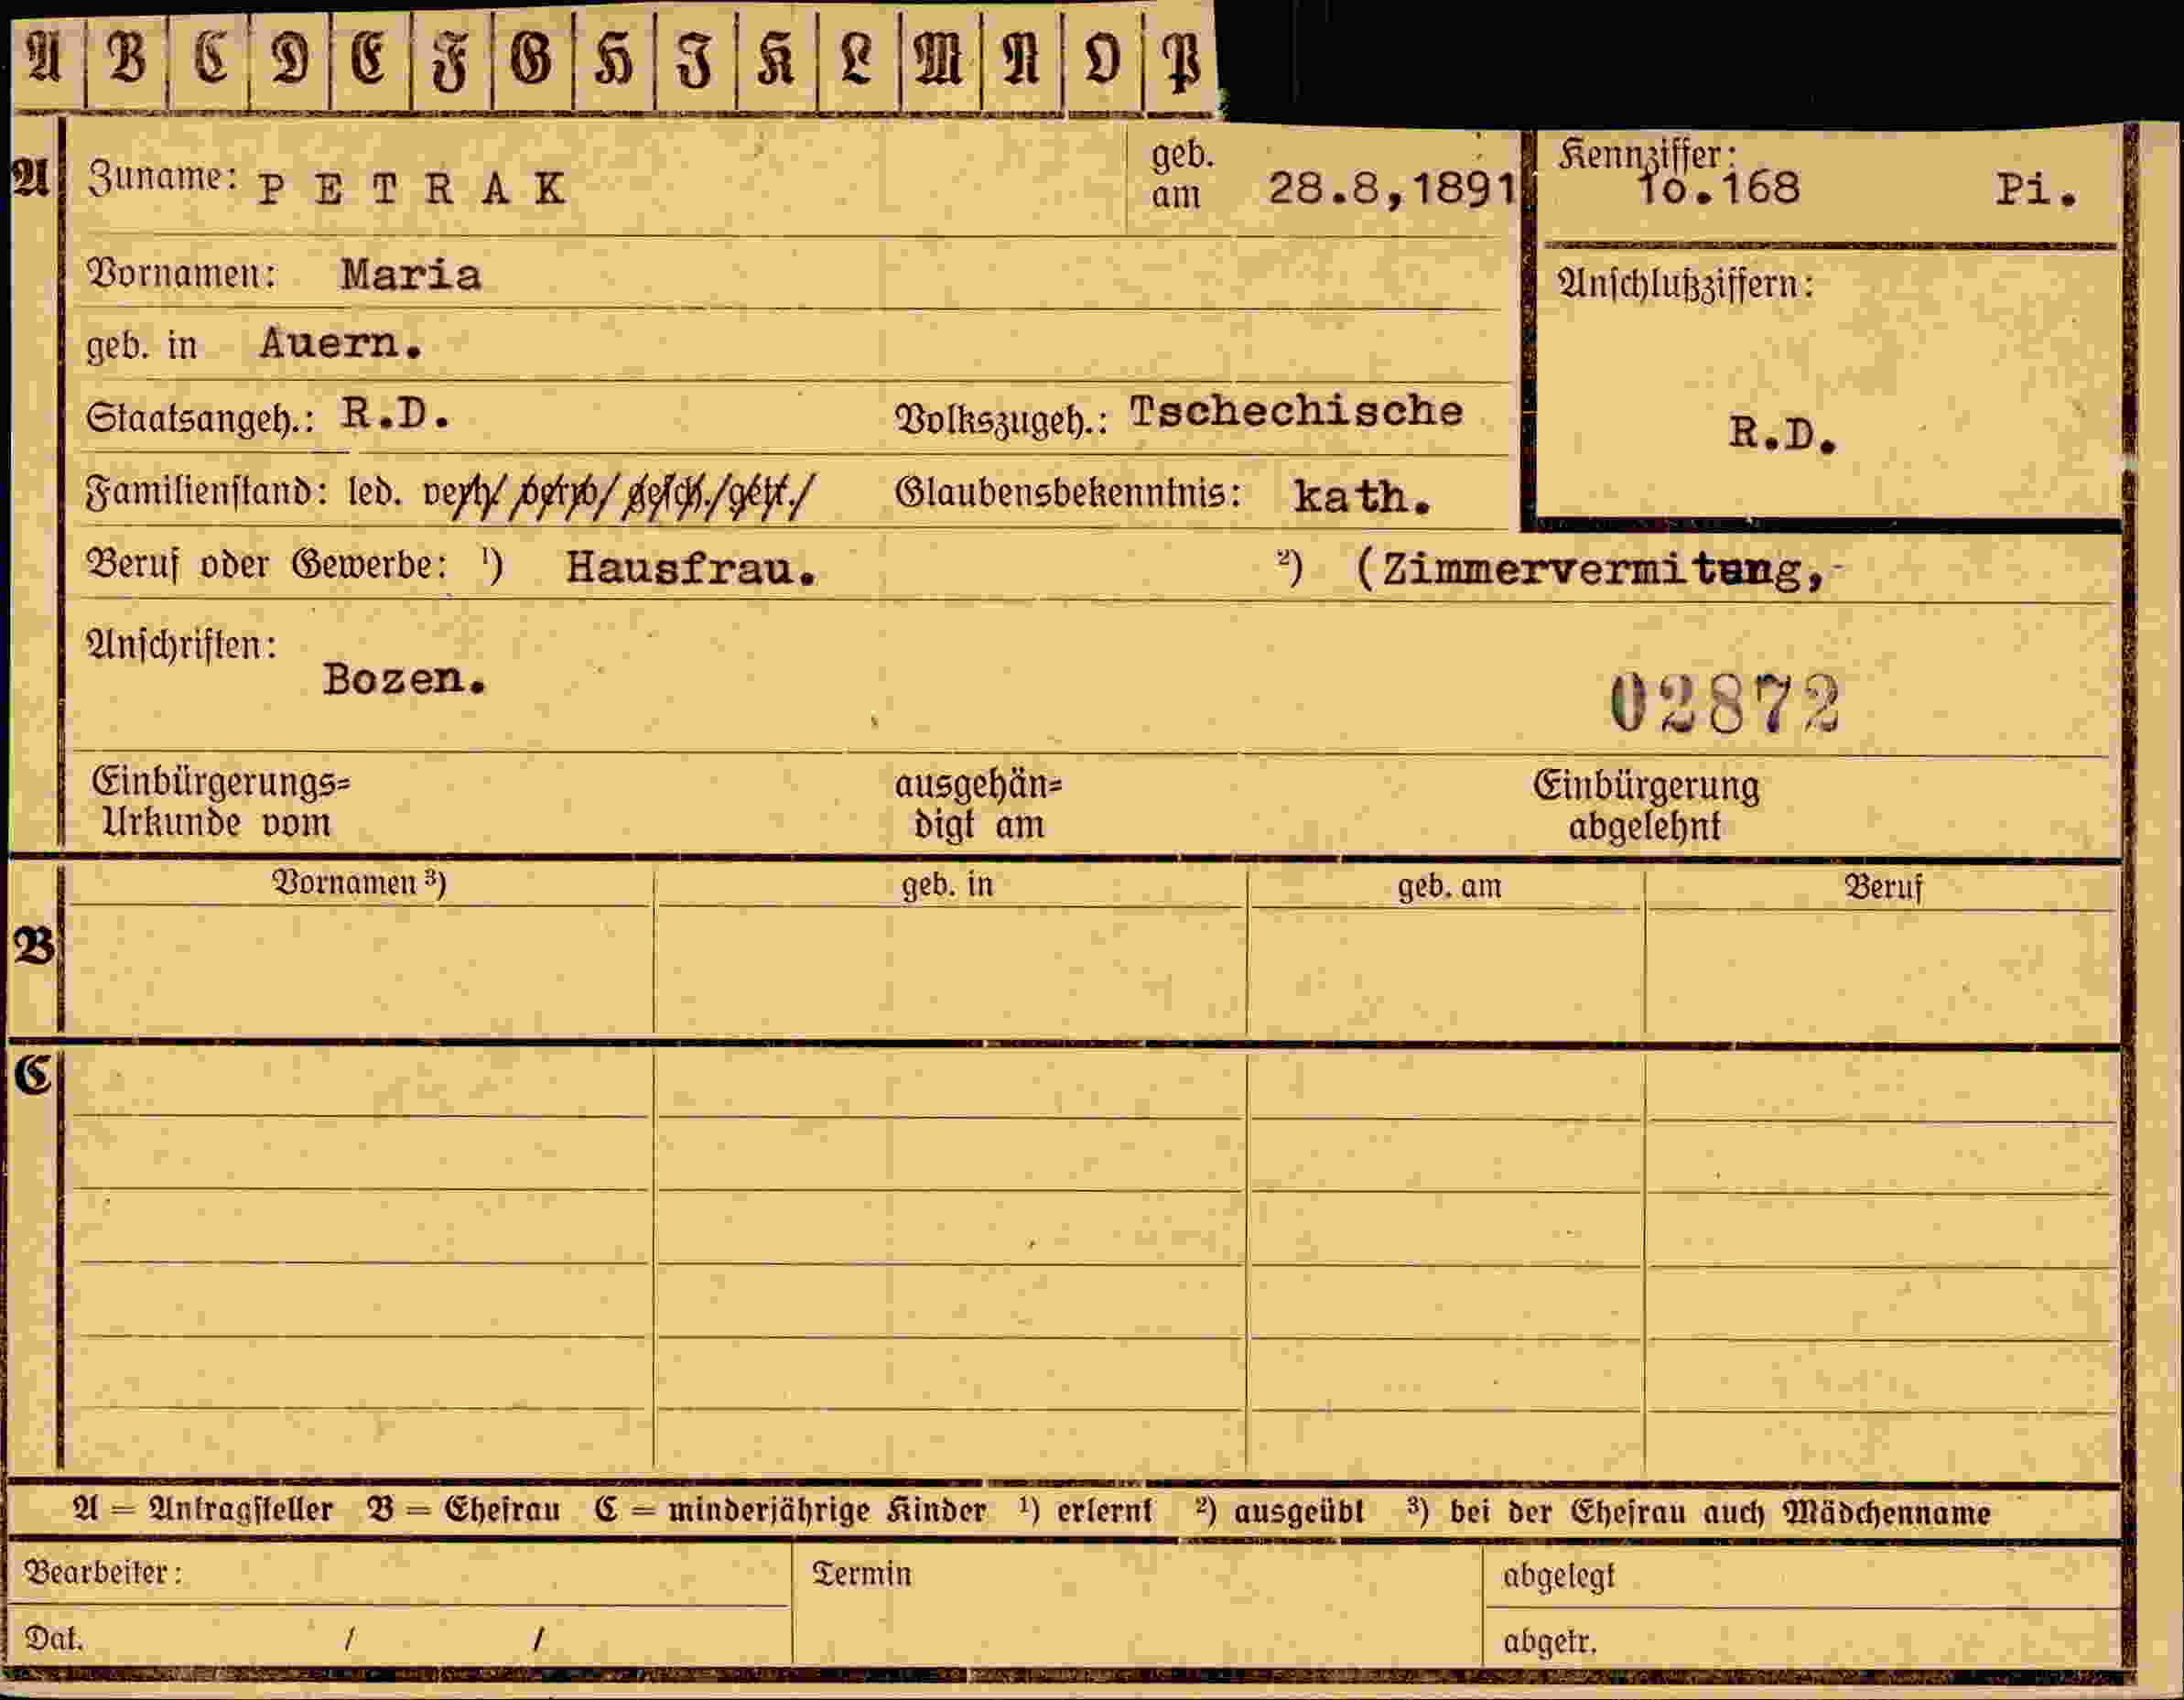 A B C D E F G H I K L M N O P
A Zuname: PETRAK geb. am 28.8,1891 Kennziffer: 10.168 Pi.
Vornamen: Maria Anschlußziffern:
geb. in Auern.
Staatsangeh.: R.D. Volkszugeh.: Tschechische R.D.
Familienstand: led. verh/ verw/ gesch./getr./ Glaubensbekenntnis: kath.
Beruf oder Gewerbe: ¹) Hausfrau. ²) (Zimmervermitung,-
Anschriften:
Bozen. 02872
Einbürgerungs= ausgehän= Einbürgerung
Urkunde vom digt am abgelehnt
Vornamen ³) geb. in geb. am Beruf
B
C
A = Antragsteller B = Ehefrau C = minderjährige Kinder ¹) erlernt ²) ausgeübt ³) bei der Ehefrau auch Mädchenname
Bearbeiter: Termin abgelegt
Dat. / / abgetr.